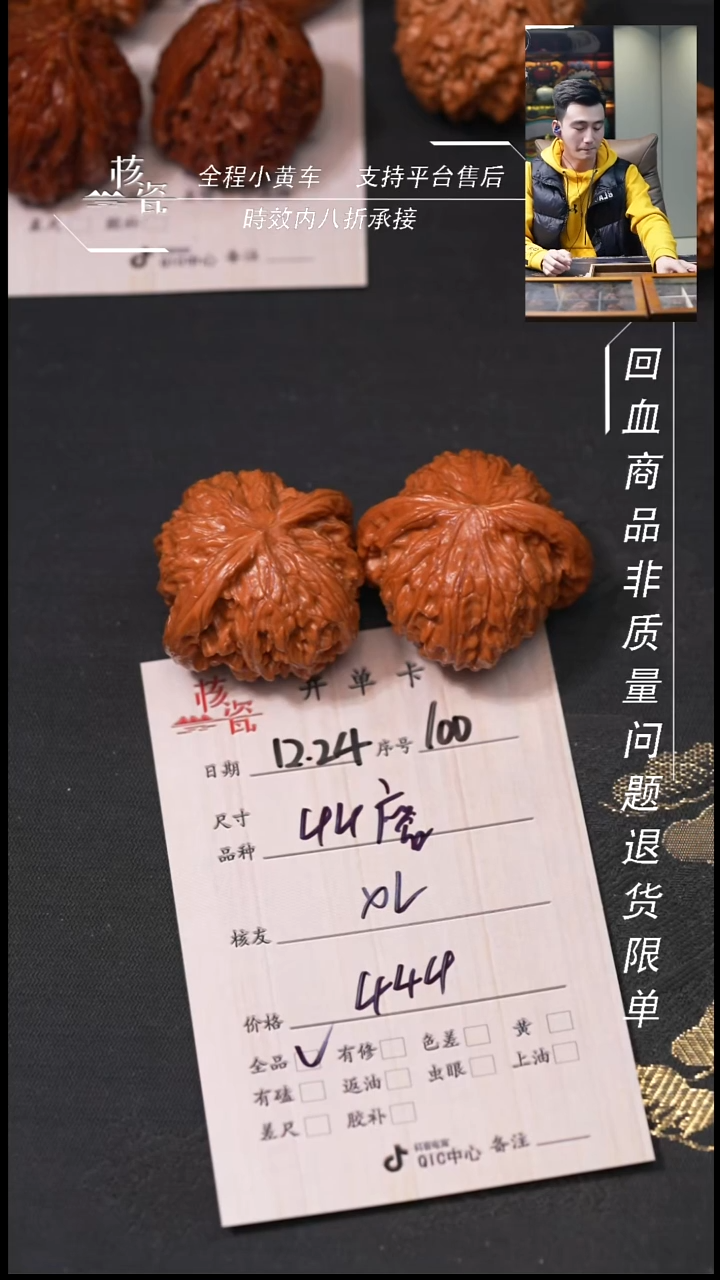 核瓷
全程小黄车 支持平台售后
時效内八折承接
QIC中心 备注
回血商品非质量问题退货限单
核瓷
开单卡
日期 12.24 序号 100
尺寸
品种 44
核友 XL
价格 444
全品 有修 色差 黄
有磕 返油 虫眼 上油
差尺 胶补
QIC中心 备注